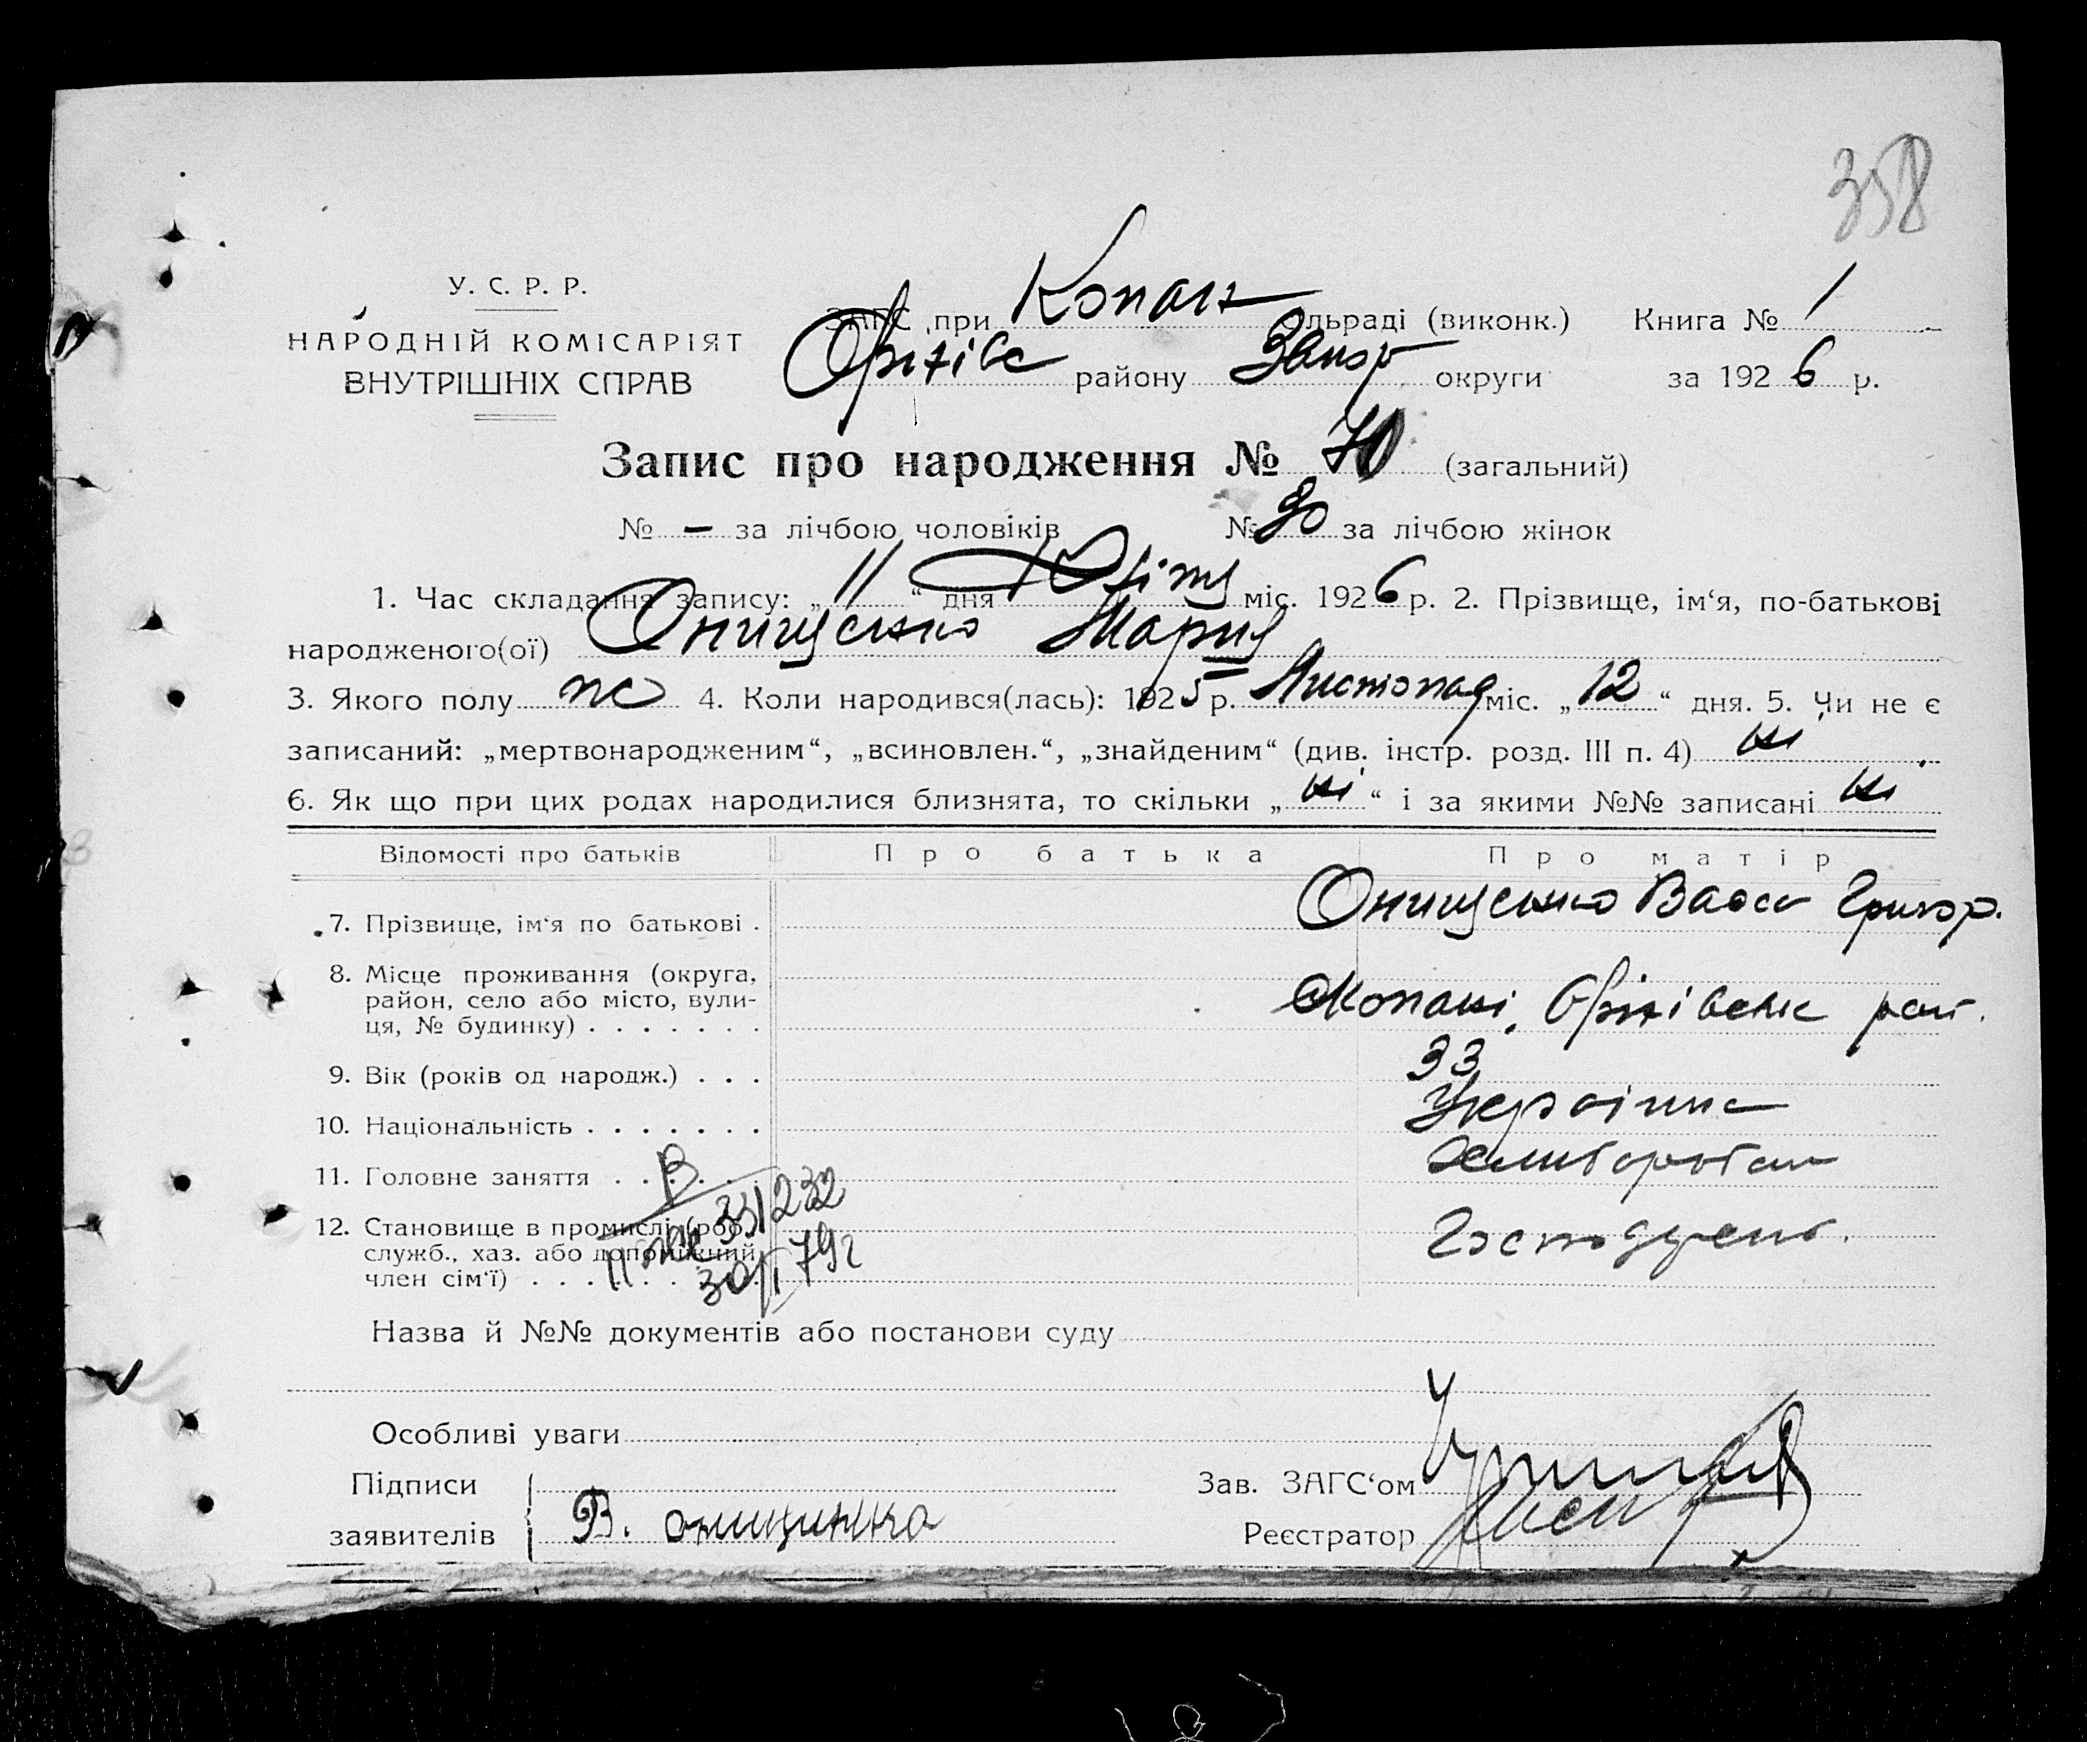 358
У. С. Р. Р.
НАРОДНІЙ КОМІСАРІЯТ
ВНУТРІШНІХ СПРАВ
ЗАГС при Копан сільраді (виконк.) Книга № 1
Оріхівс району Запор округи за 1926 р.
Запис про народження № 70 (загальний)
№ – за лічбою чоловіків № 30 за лічбою жінок
1. Час складання запису: „11“ дня міс. 1926 р. 2. Прізвище, ім‘я, по-батькові
народженого(ої) Онищенко Мария
3. Якого полу жс 4. Коли народився(лась): 1925 р. Листопад міс. „12“ дня. 5. Чи не є
записаний: „мертвонародженим“, „всиновлен.“, „знайденим“ (див. інстр. розд. III п. 4) ні
6. Як що при цих родах народилися близнята, то скільки „ні“ і за якими №№ записані ні
Відомості про батьків Про батька Про матір
7. Прізвище, ім‘я по батькові . Онищенко Васс Григор.
8. Місце проживання (округа,
район, село або місто, вули-
ця, № будинку) . . . . . . . Копані, Оріхівськ рай.
9. Вік (років од народж.) . . . 33
10. Національність . . . . . . . Українка
11. Головне заняття . . . .
12. Становище в промислі (роб.,
служб., хаз. або допоміжний
член сім‘ї) . . . . Господрень.
331232
79г
Назва й №№ документів або постанови суду
Особливі уваги
Підписи
заявителів В. онищинка
Зав. ЗАГС‘ом
Реєстратор